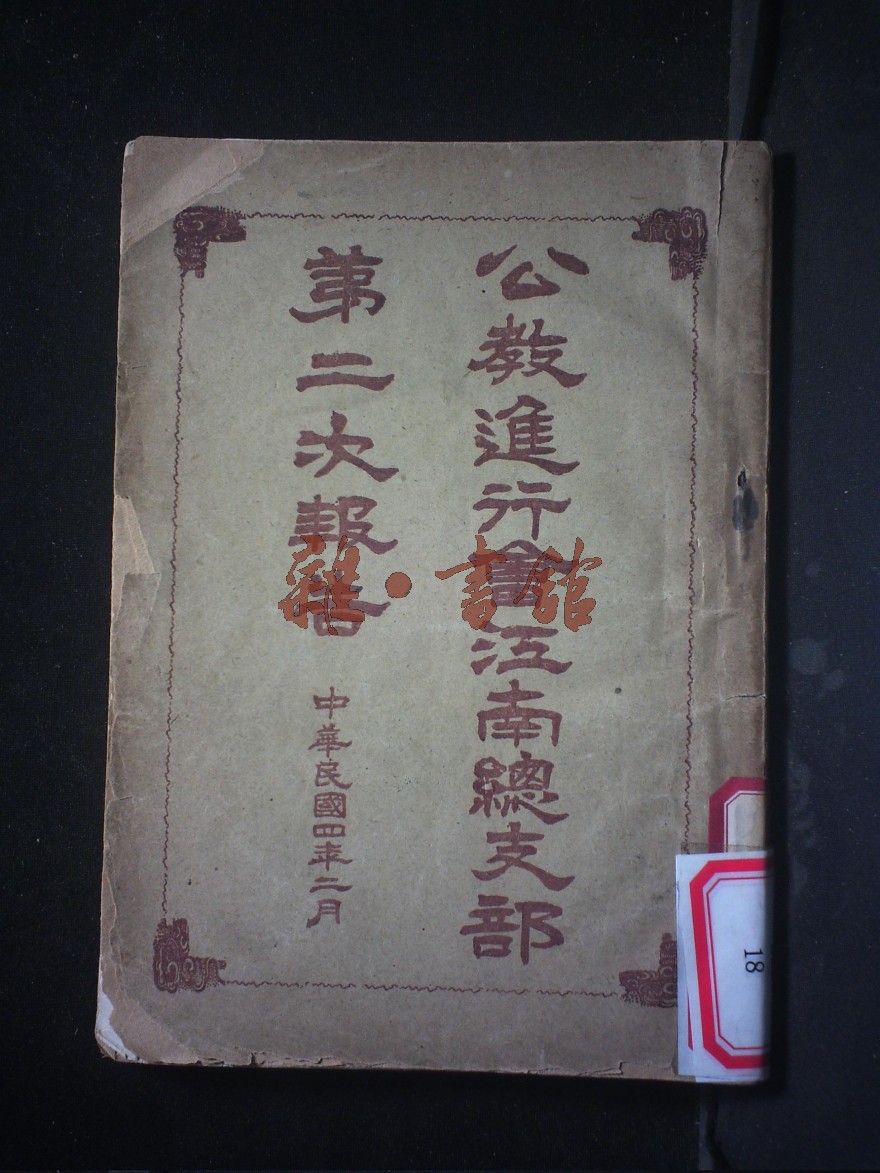 公教進行會江南總支部
第二次報告
中華民國四年二月
書館
18